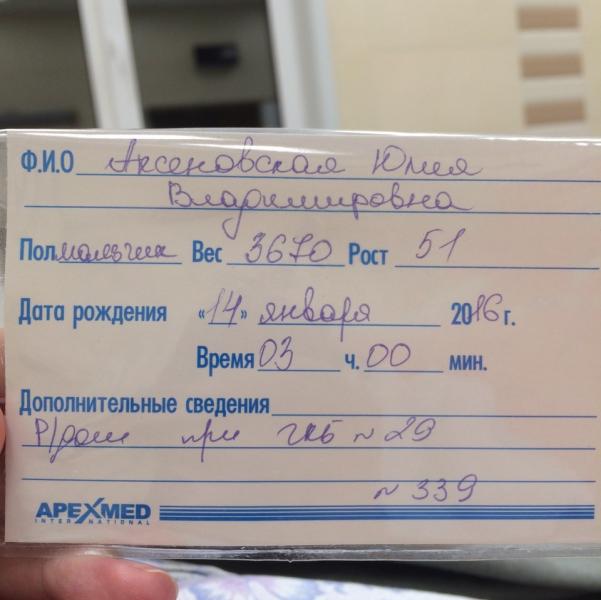 Ф.И.О Аксеновская Юлия
Владимировна
Пол мальчик Вес 3670 Рост 51
Дата рождения «14» января 2016 г.
Время 03 ч. 00 мин.
Дополнительные сведения
Р/дом при ГКБ №29
№339
APEXMED
INTERNATIONAL